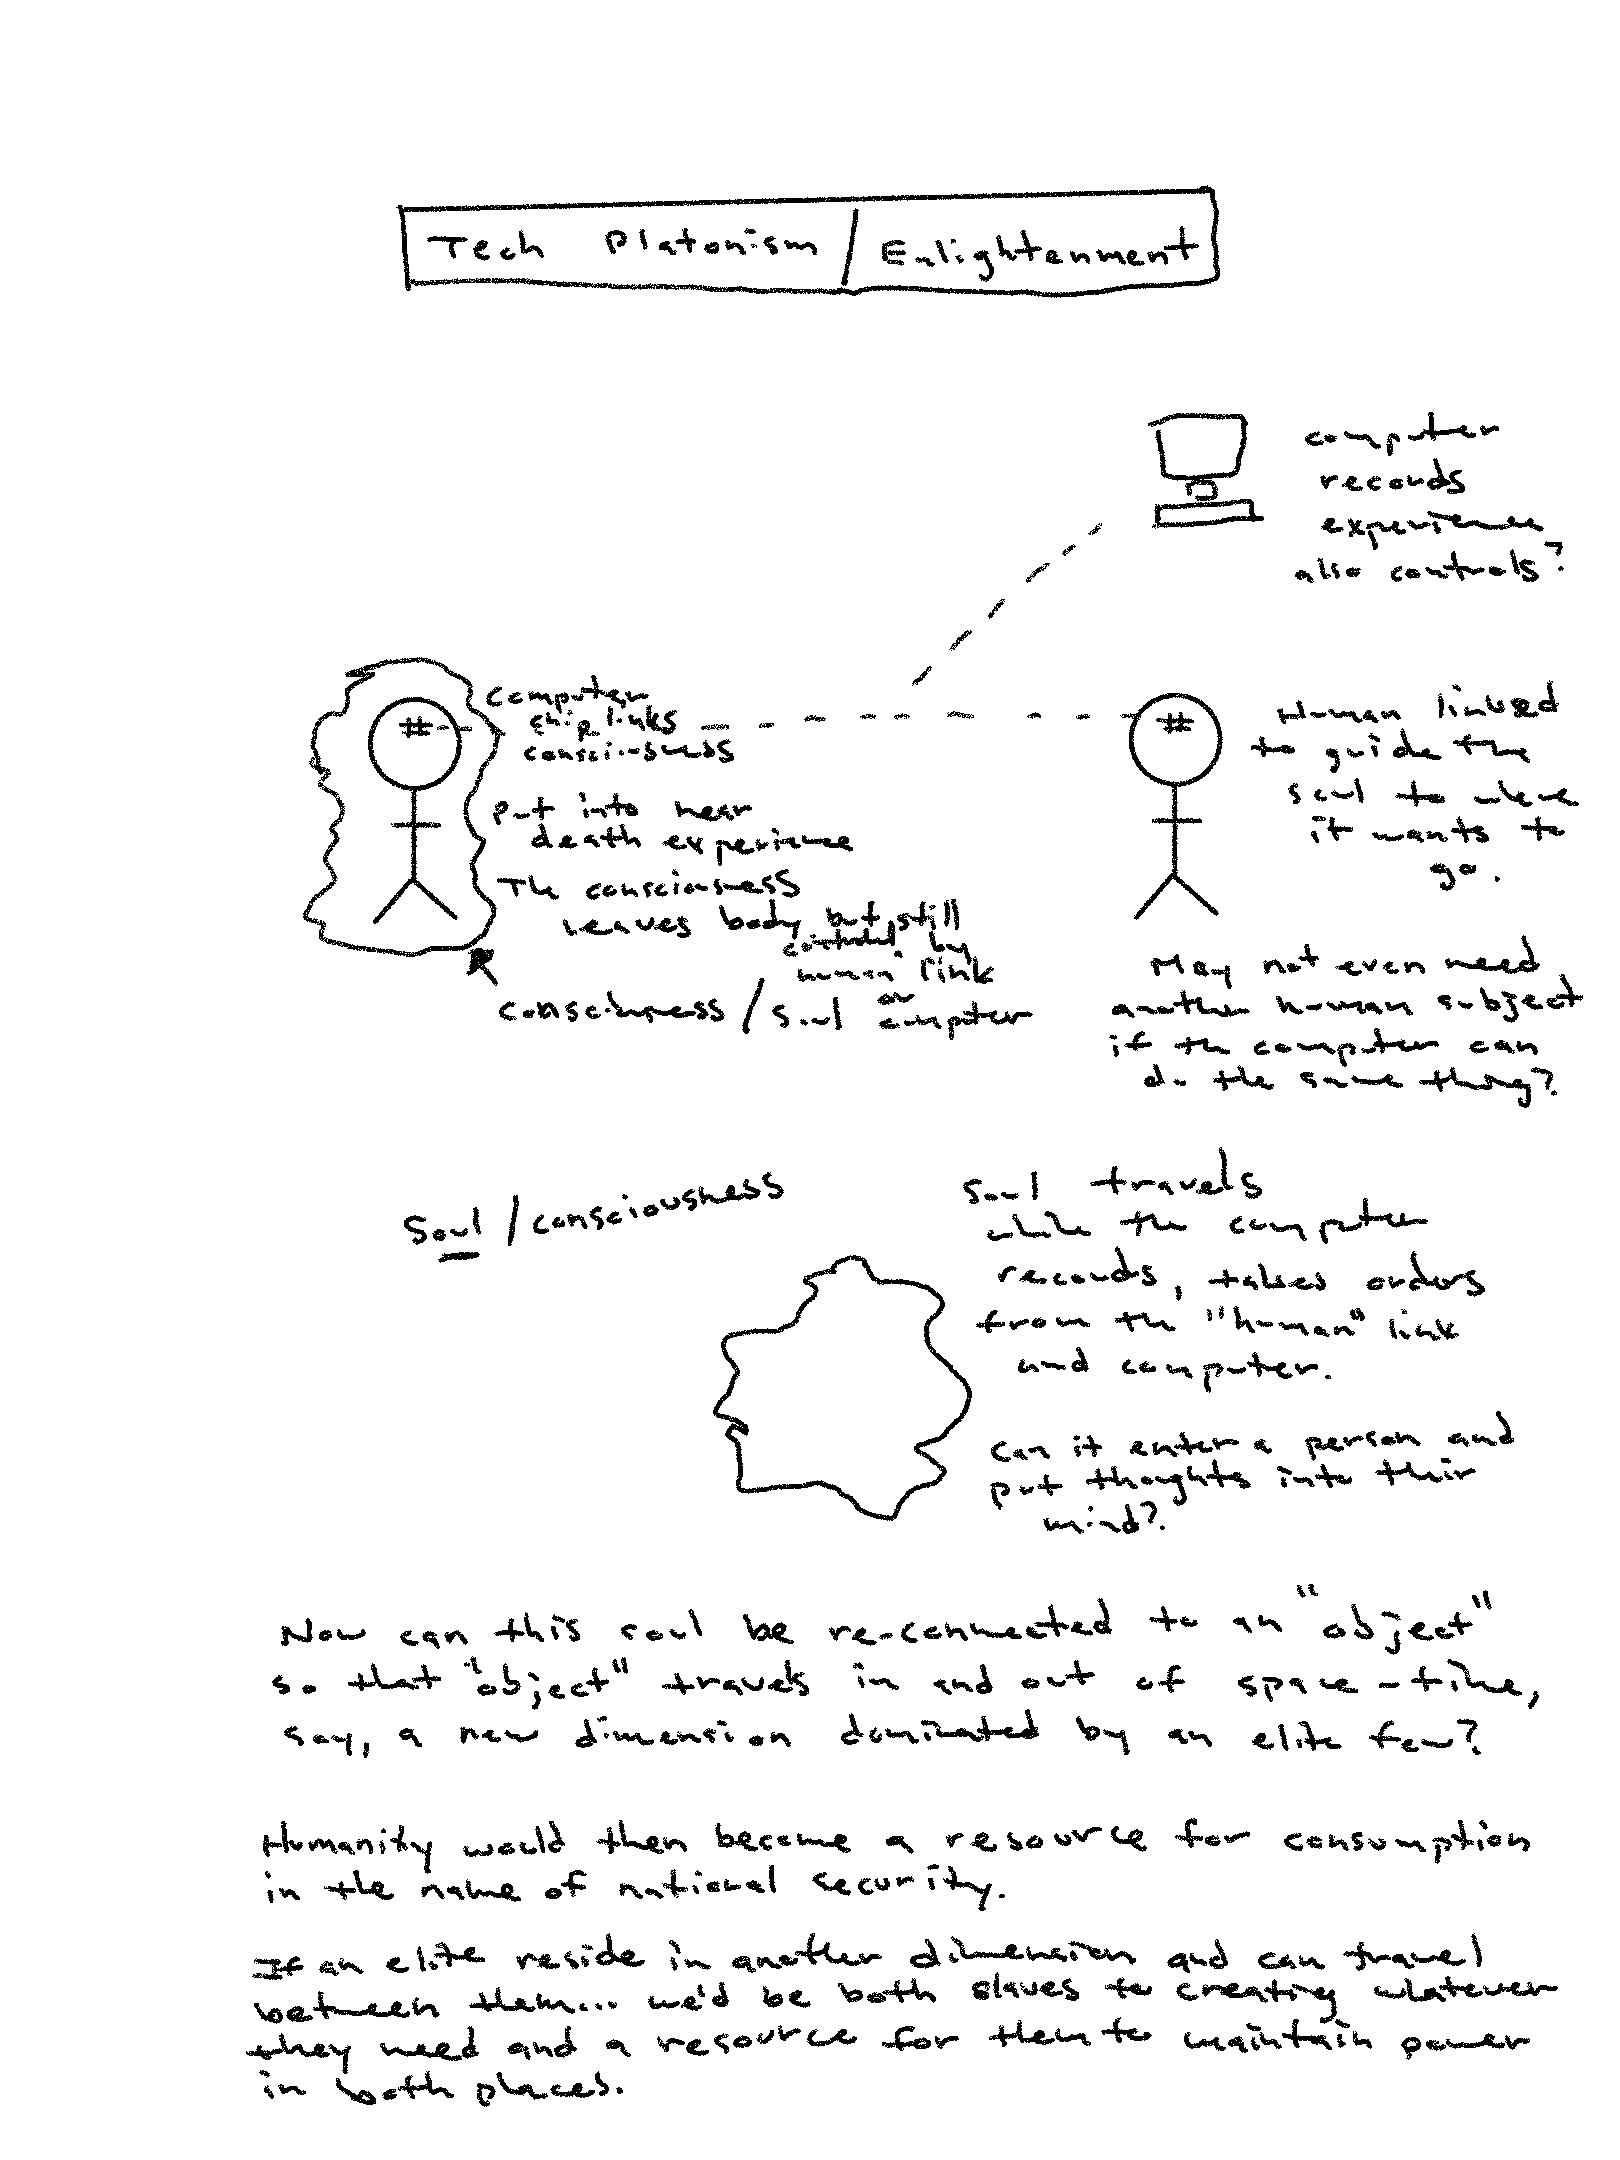 Tech Platonism / Enlightenment
computer
records
experience
also controls?
computer
chip links
consciousness
Put into near
death experience
The consciousness
leaves body but still
controlled by
human link
or
consciousness / soul computer
Human linked
to guide the
soul to where
it wants to
go.
May not even need
another human subject
if the computer can
do the same thing?
Soul / consciousness
Soul travels
while the computer
records, takes orders
from the "human" link
and computer.
Can it enter a person and
put thoughts into their
mind?
Now can this soul be re-connected to an "object"
so that "object" travels in and out of space-time,
say, a new dimension dominated by an elite few?
Humanity would then become a resource for consumption
in the name of national security.
If an elite reside in another dimension and can travel
between them... we'd be both slaves to creating whatever
they need and a resource for them to maintain power
in both places.